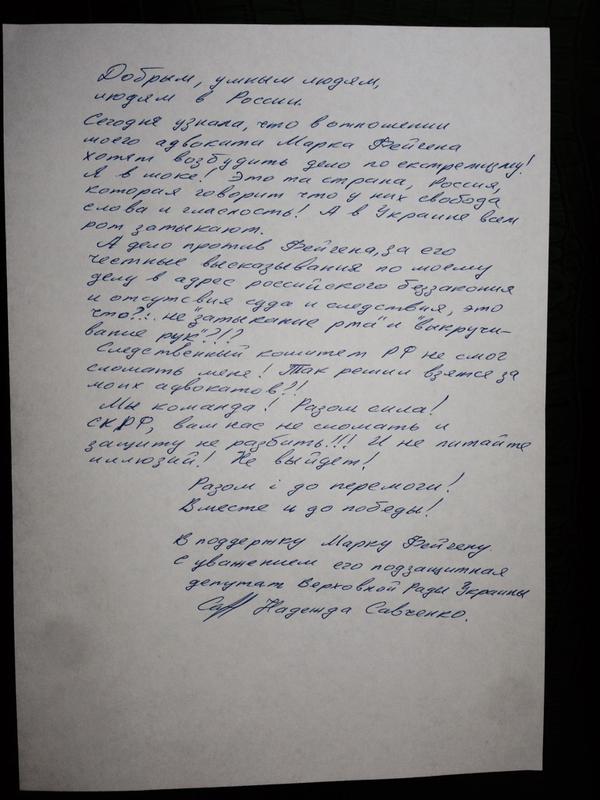 Добрым, умным людям,
людям в России.
Сегодня узнала, что в отношении
моего адвоката Марка Фейгена
хотят возбудить дело по екстремизму!
Я в шоке! Это та страна, Россия,
которая говорит что у них свобода
слова и гласность! А в Украине всем
рот затыкают.
А дело против Фейгена, за его
честные высказывания по моему
делу в адрес российского беззакония
и отсутсвия суда и следствия, это
что?!. не "затыкание рта" и "выкручи-
вание рук"?!?
Следственный комитет РФ не смог
сломать меня! Так решил взятся за
моих адвокатов?!
Мы команда! Разом сила!
СКРФ, вам нас не сломать и
защиту не разбить!!! И не питайте
иллюзий! Не выйдет!
Разом і до перемоги!
Вместе и до победы!
В поддержку Марку Фейгену.
С уважением его подзащитная
депутат Верховной Рады Украины
Надежда Савченко.